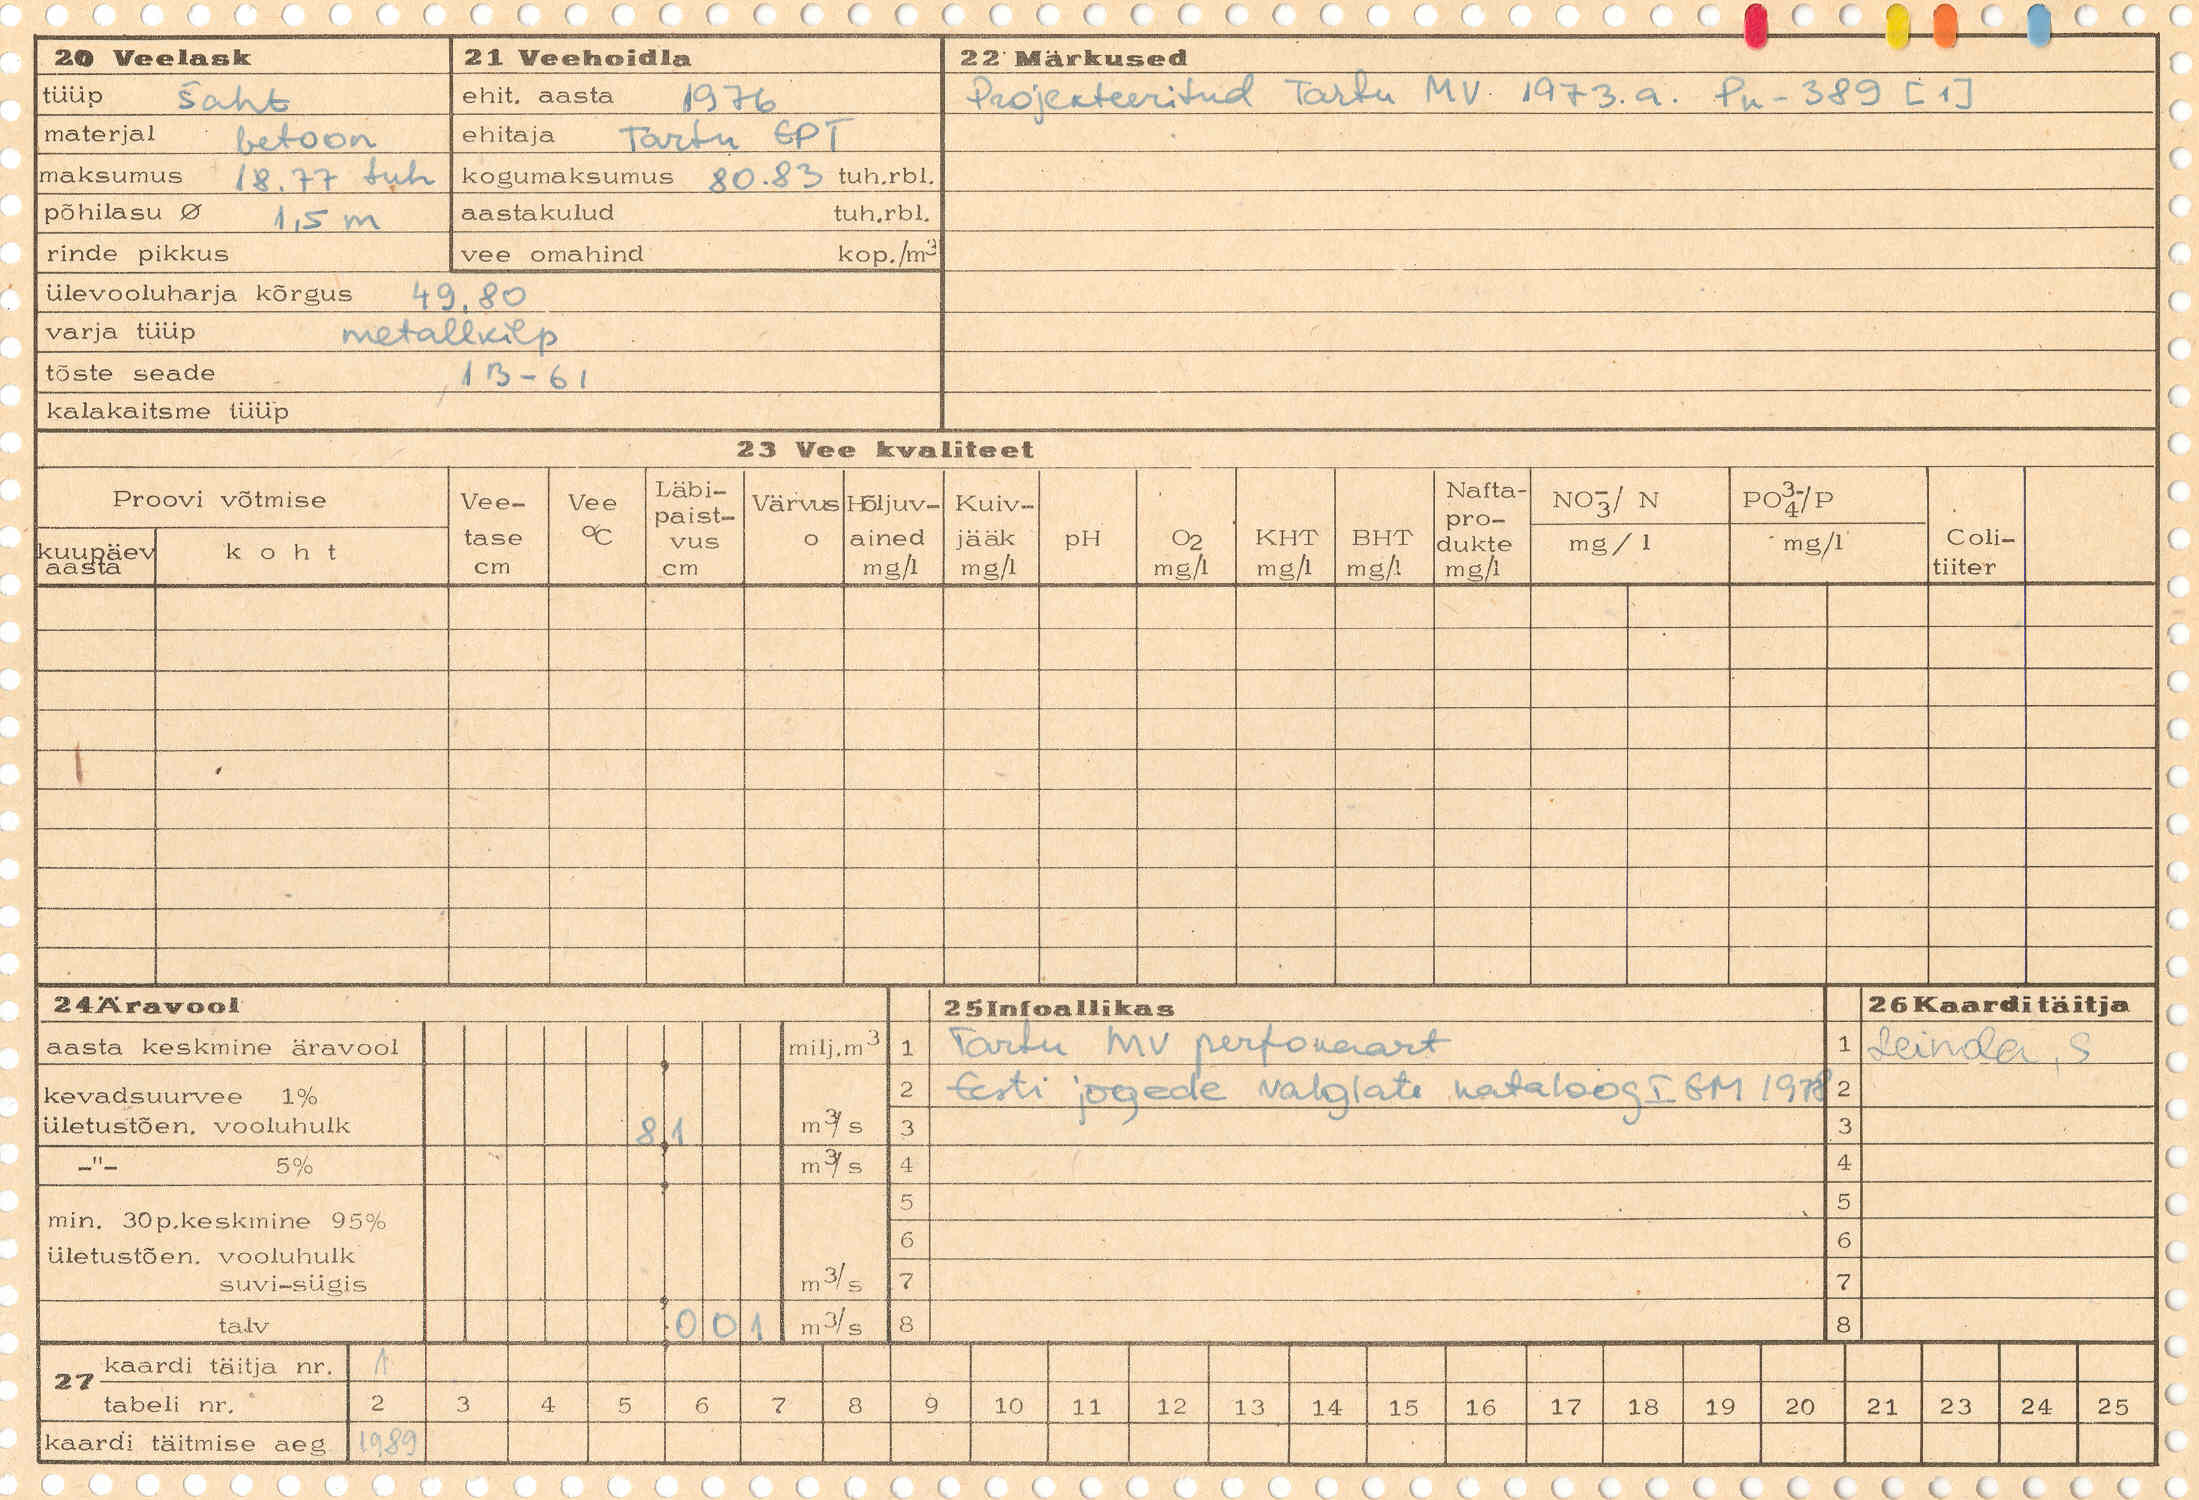 20 Veelask
tüüp šaht
materjal betoon
maksumus 18.77 tuh
põhilasu Ø 1,5 m
rinde pikkus
ülevooluharja kõrgus 49.80
varja tüüp metallkilp
tõste seade 1B-61
kalakaitsme tüüp
21 Veehoidla
ehit. aasta 1976
ehitaja Tartu EPT
kogumaksumus 80.83 tuh.rbl.
aastakulud tuh.rbl.
vee omahind kop./m3
22 Märkused
Projekteeritud Tartu MV. 1973.a. Pu-389 [1]
23 Vee kvaliteet
Proovi võtmise
kuupäev aasta
koht
Vee-
tase
cm
Vee
°C
Läbi-
paist-
vus
cm
Värvus
o
Hõljuv-
ained
mg/l
Kuiv-
jääk
mg/l
pH
O2
mg/l
KHT
mg/l
BHT
mg/l
Nafta-
pro-
dukte
mg/l
NO3-/ N
mg/l
PO4 3-/P
mg/l
Coli-
tiiter
24 Äravool
aasta keskmine äravool milj.m3
kevadsuurvee 1%
ületustõen. vooluhulk 81 m3/s
-"- 5% m3/s
min. 30p.keskmine 95%
ületustõen. vooluhulk
suvi-sügis m3/s
talv 001 m3/s
25 Infoallikas
1 Tartu MV perfokaart
2 Eesti jõgede valglate kataloog I EM 1978
3
4
5
6
7
8
26 Kaarditäitja
1 Leinola, S
2
3
4
5
6
7
8
27 kaardi täitja nr. 1
tabeli nr. 2 3 4 5 6 7 8 9 10 11 12 13 14 15 16 17 18 19 20 21 23 24 25
kaardi täitmise aeg 1989